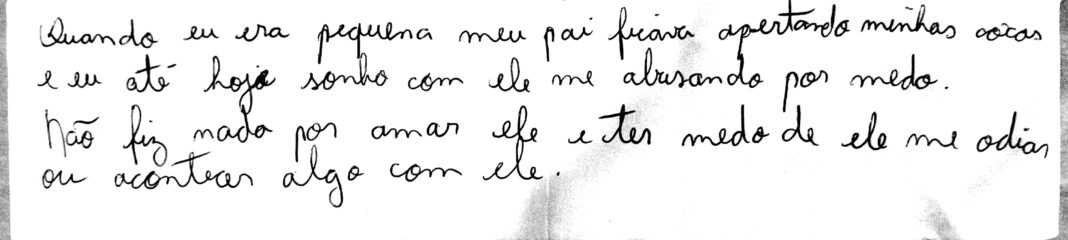 Quando eu era pequena meu pai ficava apertando minhas coxas
e eu até hoje sonho com ele me abusando por medo.
Não fiz nada por amar ele e ter medo de ele me odiar
ou acontecer algo com ele.